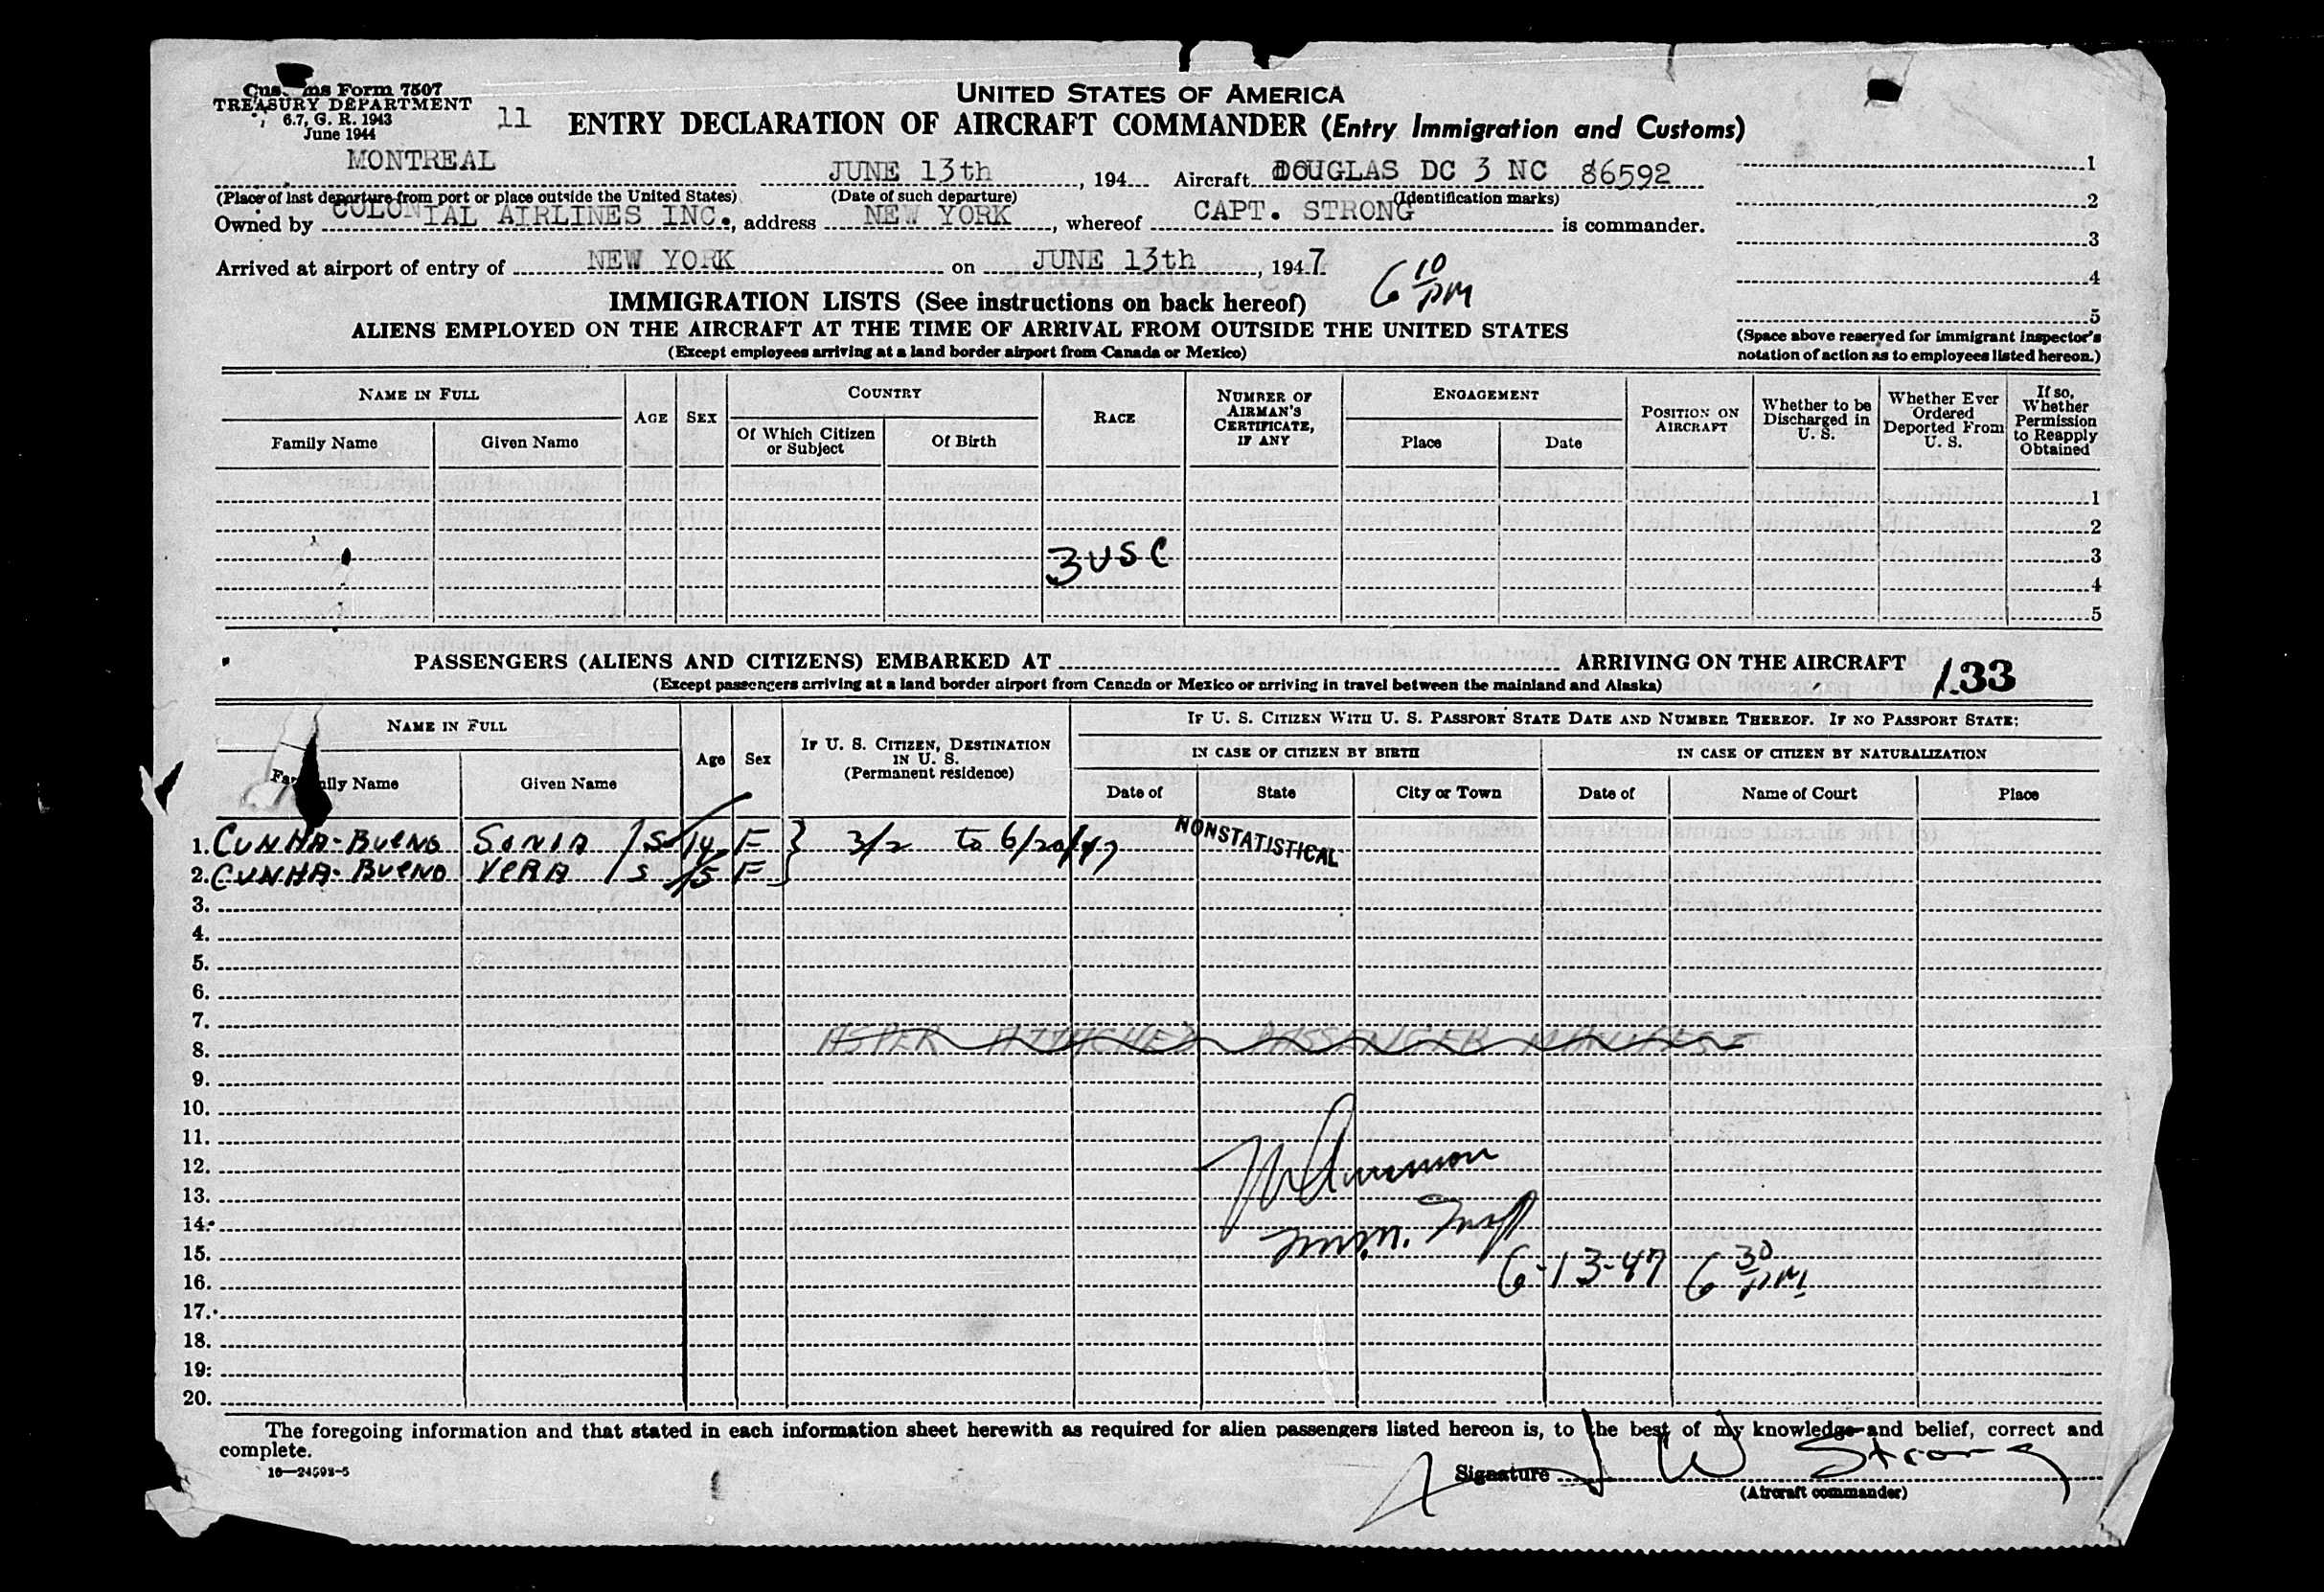 Customs Form 7507
TREASURY DEPARTMENT
6.7, G. R. 1943
June 1944
11
UNITED STATES OF AMERICA
ENTRY DECLARATION OF AIRCRAFT COMMANDER (Entry Immigration and Customs)
MONTREAL JUNE 13th, 194 Aircraft DOUGLAS DC 3 NC 86592
(Place of last departure from port or place outside the United States) (Date of such departure) (Identification marks)
Owned by COLONIAL AIRLINES INC., address NEW YORK, whereof CAPT. STRONG is commander.
Arrived at airport of entry of NEW YORK on JUNE 13th, 1947
6 10 PM
1
2
3
4
5
(Space above reserved for immigrant inspector's
notation of action as to employees listed hereon.)
IMMIGRATION LISTS (See instructions on back hereof)
ALIENS EMPLOYED ON THE AIRCRAFT AT THE TIME OF ARRIVAL FROM OUTSIDE THE UNITED STATES
(Except employees arriving at a land border airport from Canada or Mexico)
NAME IN FULL
Family Name Given Name
AGE SEX
COUNTRY
Of Which Citizen or Subject Of Birth
RACE
NUMBER OF AIRMAN'S CERTIFICATE, IF ANY
ENGAGEMENT
Place Date
POSITION ON AIRCRAFT
Whether to be Discharged in U. S.
Whether Ever Ordered Deported From U. S.
If so, Whether Permission to Reapply Obtained
1
2
3 USC 3
4
5
PASSENGERS (ALIENS AND CITIZENS) EMBARKED AT ARRIVING ON THE AIRCRAFT
(Except passengers arriving at a land border airport from Canada or Mexico or arriving in travel between the mainland and Alaska)
133
NAME IN FULL
Family Name Given Name
Age Sex
IF U. S. CITIZEN, DESTINATION IN U. S.
(Permanent residence)
IF U. S. CITIZEN WITH U. S. PASSPORT STATE DATE AND NUMBER THEREOF. IF NO PASSPORT STATE:
IN CASE OF CITIZEN BY BIRTH IN CASE OF CITIZEN BY NATURALIZATION
Date of State City or Town Date of Name of Court Place
1. CUNHA-BUENO SONIA / S 14 F 3/2 to 6/20/47 NONSTATISTICAL
2. CUNHA-BUENO VERA / S 15 F
3.
4.
5.
6.
7.
8. AS PER ATTACHED PASSENGER MANIFEST
9.
10.
11.
12.
13.
14.
15.
16. 6-13-47 6 30 PM
17.
18.
19.
20.
The foregoing information and that stated in each information sheet herewith as required for alien passengers listed hereon is, to the best of my knowledge and belief, correct and
complete.
16—24598-5
Signature J W Strong
(Aircraft commander)